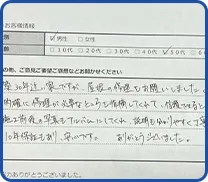 お客様情報
別 ☑男性 □女性
齢 □10代 □20代 □30代 □40代 ☑50代 □6
の他、ご意見ご要望ご感想などお聞かせください
築30年近い家ですが、屋根の修理をお願いしました
的確に修理が必要なところを指摘してくれて、
施工前後の写真もアルバムにしてくれ、説明もわかりやすく丁寧
10年保証もあり、安心です。 ありがとうございました。
力ありがとうございました。